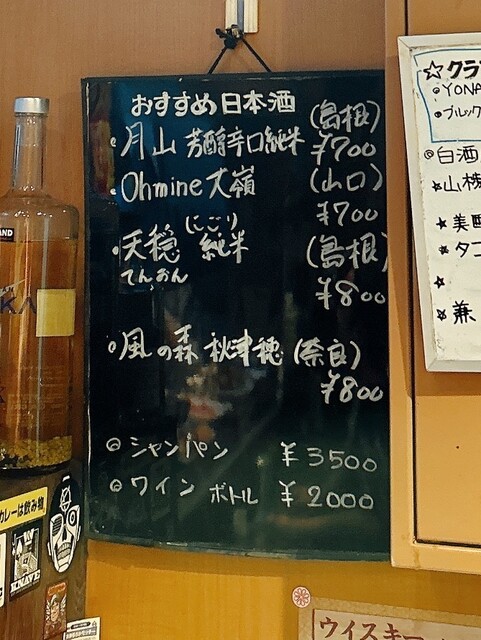 おすすめ日本酒
(島根)
・月山 芳醇辛口純米
¥700
・Ohmine 大嶺 (山口)
¥700
にごり
・天穏 純米 (島根)
てんおん
¥800
・風の森 秋津穂 (奈良)
¥800
◎シャンパン ¥3500
◎ワイン ボトル ¥2000
☆クラ
◦YONA
◦ブルック
◎白酒
★山株
★美
★タコ
★
★兼
カレーは飲み物
KNAVE
ウイスキー